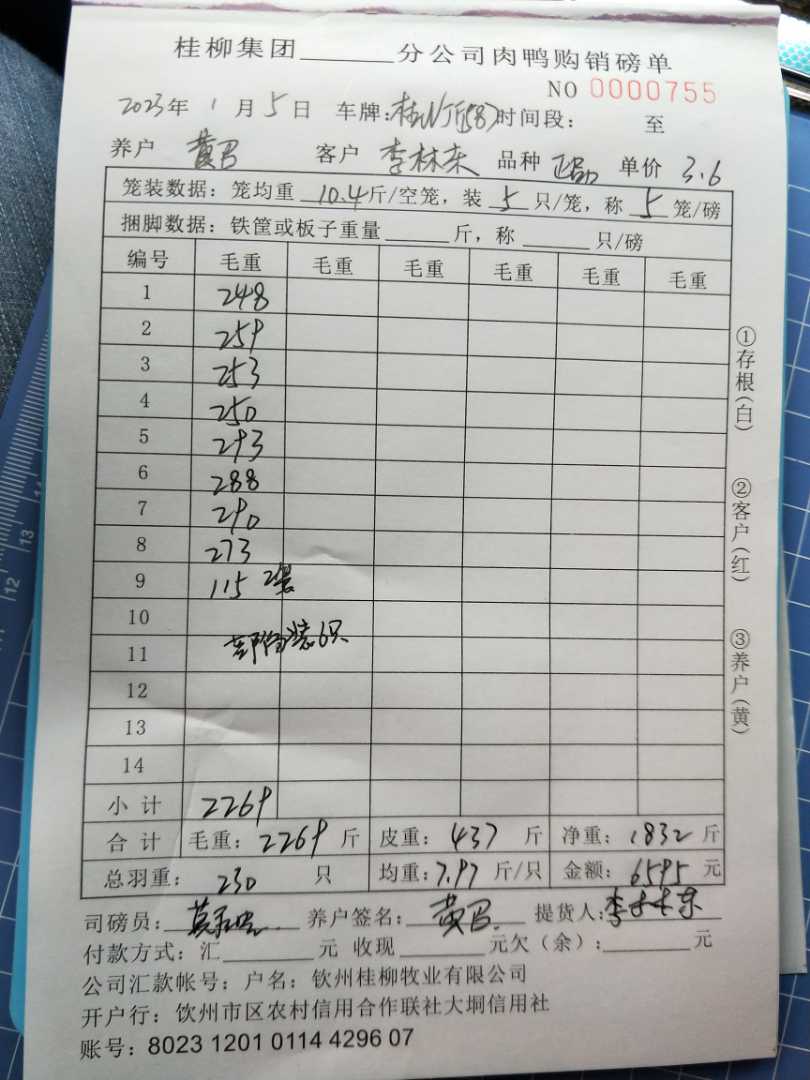 桂柳集团______分公司肉鸭购销磅单
NO 0000755
2023年 1 月 5 日 车牌: 时间段: 至
养户 黄召 客户 李林东 品种 正品 单价 3.6
笼装数据：笼均重 10.4 斤/空笼，装 5 只/笼，称 5 笼/磅
捆脚数据：铁筐或板子重量______斤，称______只/磅
编号 毛重 毛重 毛重 毛重 毛重 毛重
1 248
2 259
3 253
4 250
5 293
6 288
7 290
8 273
9 115 2笼
10
11 装6只
12
13
14
小 计 2269
合 计 毛重：2269 斤 皮重：437 斤 净重：1832 斤
总羽重：230 只 均重：7.97 斤/只 金额：6595 元
司磅员： 养户签名：黄召 提货人：李林东
付款方式：汇______元 收现______元欠（余）：______元
公司汇款帐号：户名：钦州桂柳牧业有限公司
开户行：钦州市区农村信用合作联社大垌信用社
账号：8023 1201 0114 4296 07
①存根(白)
②客户(红)
③养户(黄)
11
12
13